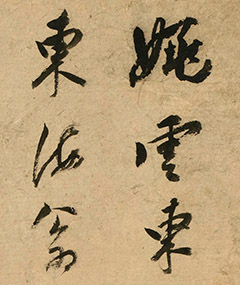 姚雲東
東海翁